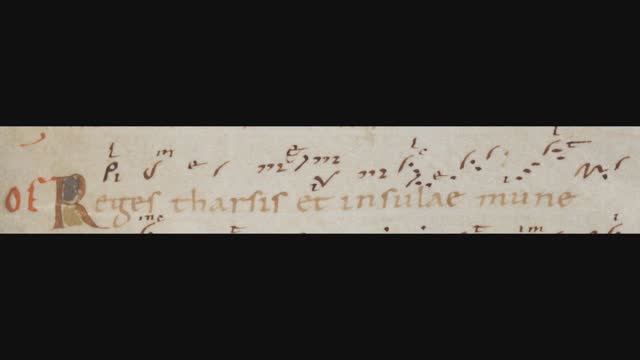 OF Reges tharsis et insulae mune